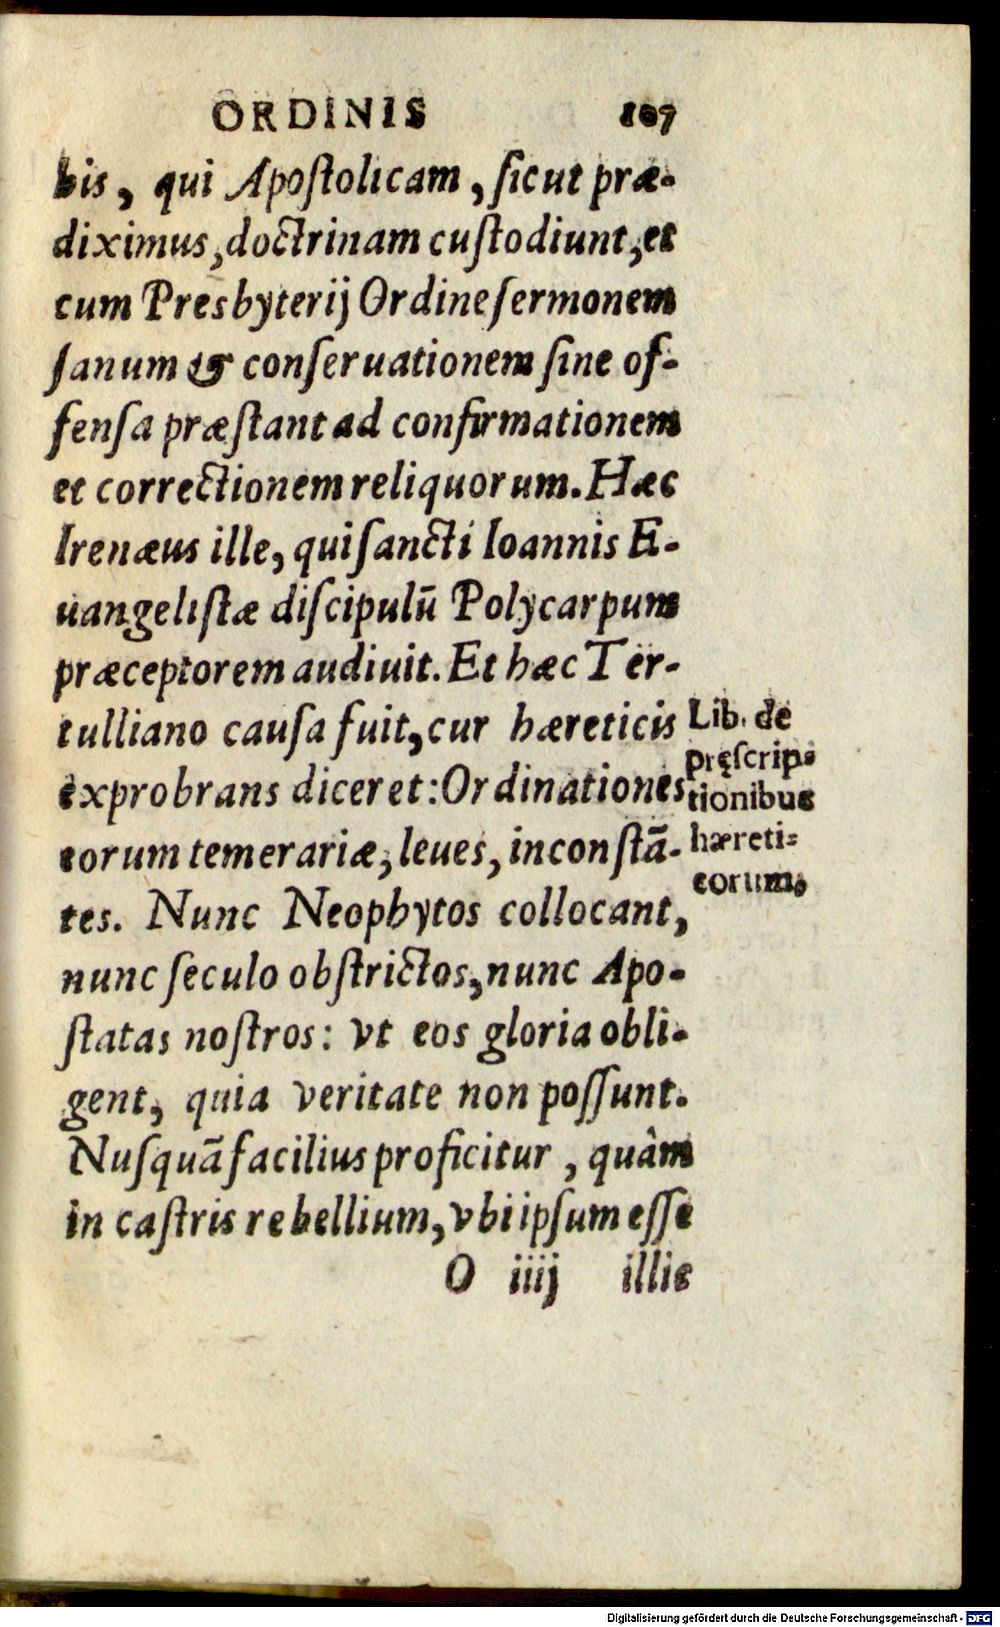 ORDINIS 107
bis, qui Apoſtolicam, ſicut præ-
diximus, doctrinam cuſtodiunt, et
cum Presbyterij Ordine ſermonem
ſanum & conſeruationem ſine of-
fenſa præſtant ad confirmationem
et correctionem reliquorum. Hæc
Irenæus ille, qui ſancti Ioannis E-
uangeliſtæ diſcipulū Polycarpum
præceptorem audiuit. Et hæc Ter-
tulliano cauſa fuit, cur hæreticis
exprobrans diceret: Ordinationes
eorum temerariæ, leues, inconſtā-
tes. Nunc Neophytos collocant,
nunc ſeculo obſtrictos, nunc Apo-
ſtatas noſtros: vt eos gloria obli-
gent, quia veritate non poſſunt.
Nuſquā facilius proficitur, quàm
in caſtris rebellium, vbi ipſum eſſe
O iiij illic
Lib. de
pręſcrip-
tionibus
hæreti-
corum,
Digitalisierung gefördert durch die Deutsche Forschungsgemeinschaft - DFG